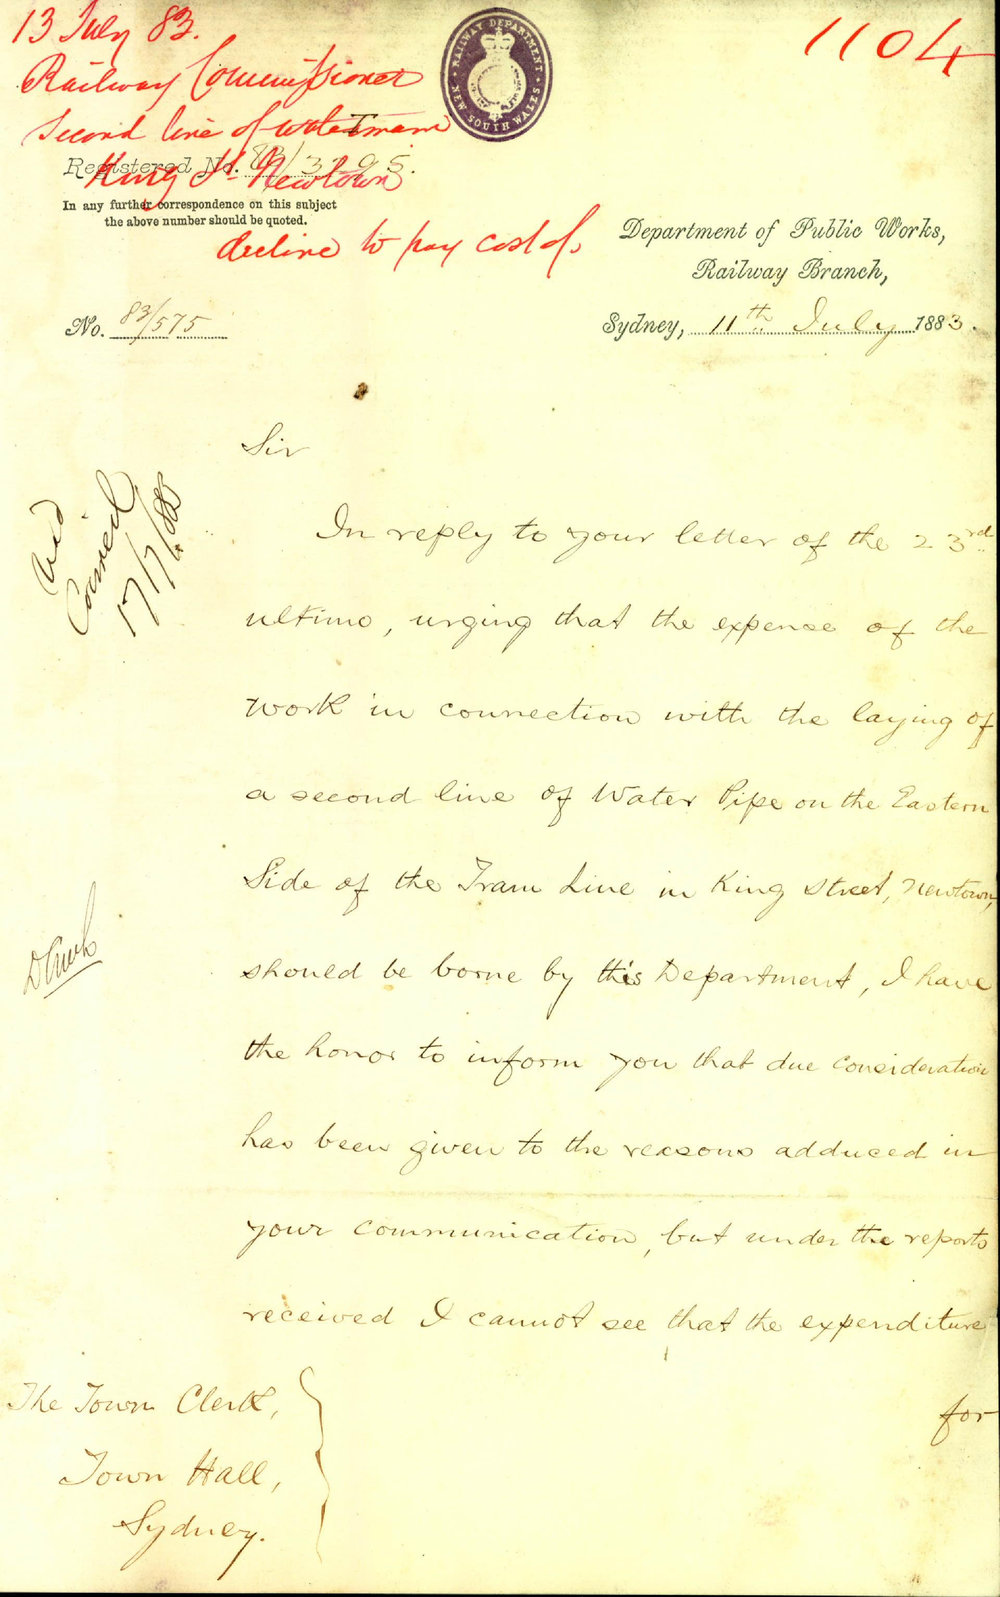 13 July 83.
1104
Railway Commissioner
RAILWAY DEPARTMENT
NEW SOUTH WALES
Second line of watermain
Registered No. 83/3295.
King St. Newtown
In any further correspondence on this subject
the above number should be quoted.
decline to pay cost of.
Department of Public Works,
Railway Branch,
No. 83/575
Sydney, 11th July 1883.
Sir
Council
17/7/83
In reply to your letter of the 23rd
ultimo, urging that the expense of the
work in connection with the laying of
a second line of Water Pipe on the Eastern
Side of the Tram Line in King Street, Newtown,
should be borne by this Department, I have
the honor to inform you that due consideration
has been given to the reasons adduced in
your communication, but under the reports
received I cannot see that the expenditure
for
The Town Clerk,
Town Hall,
Sydney.